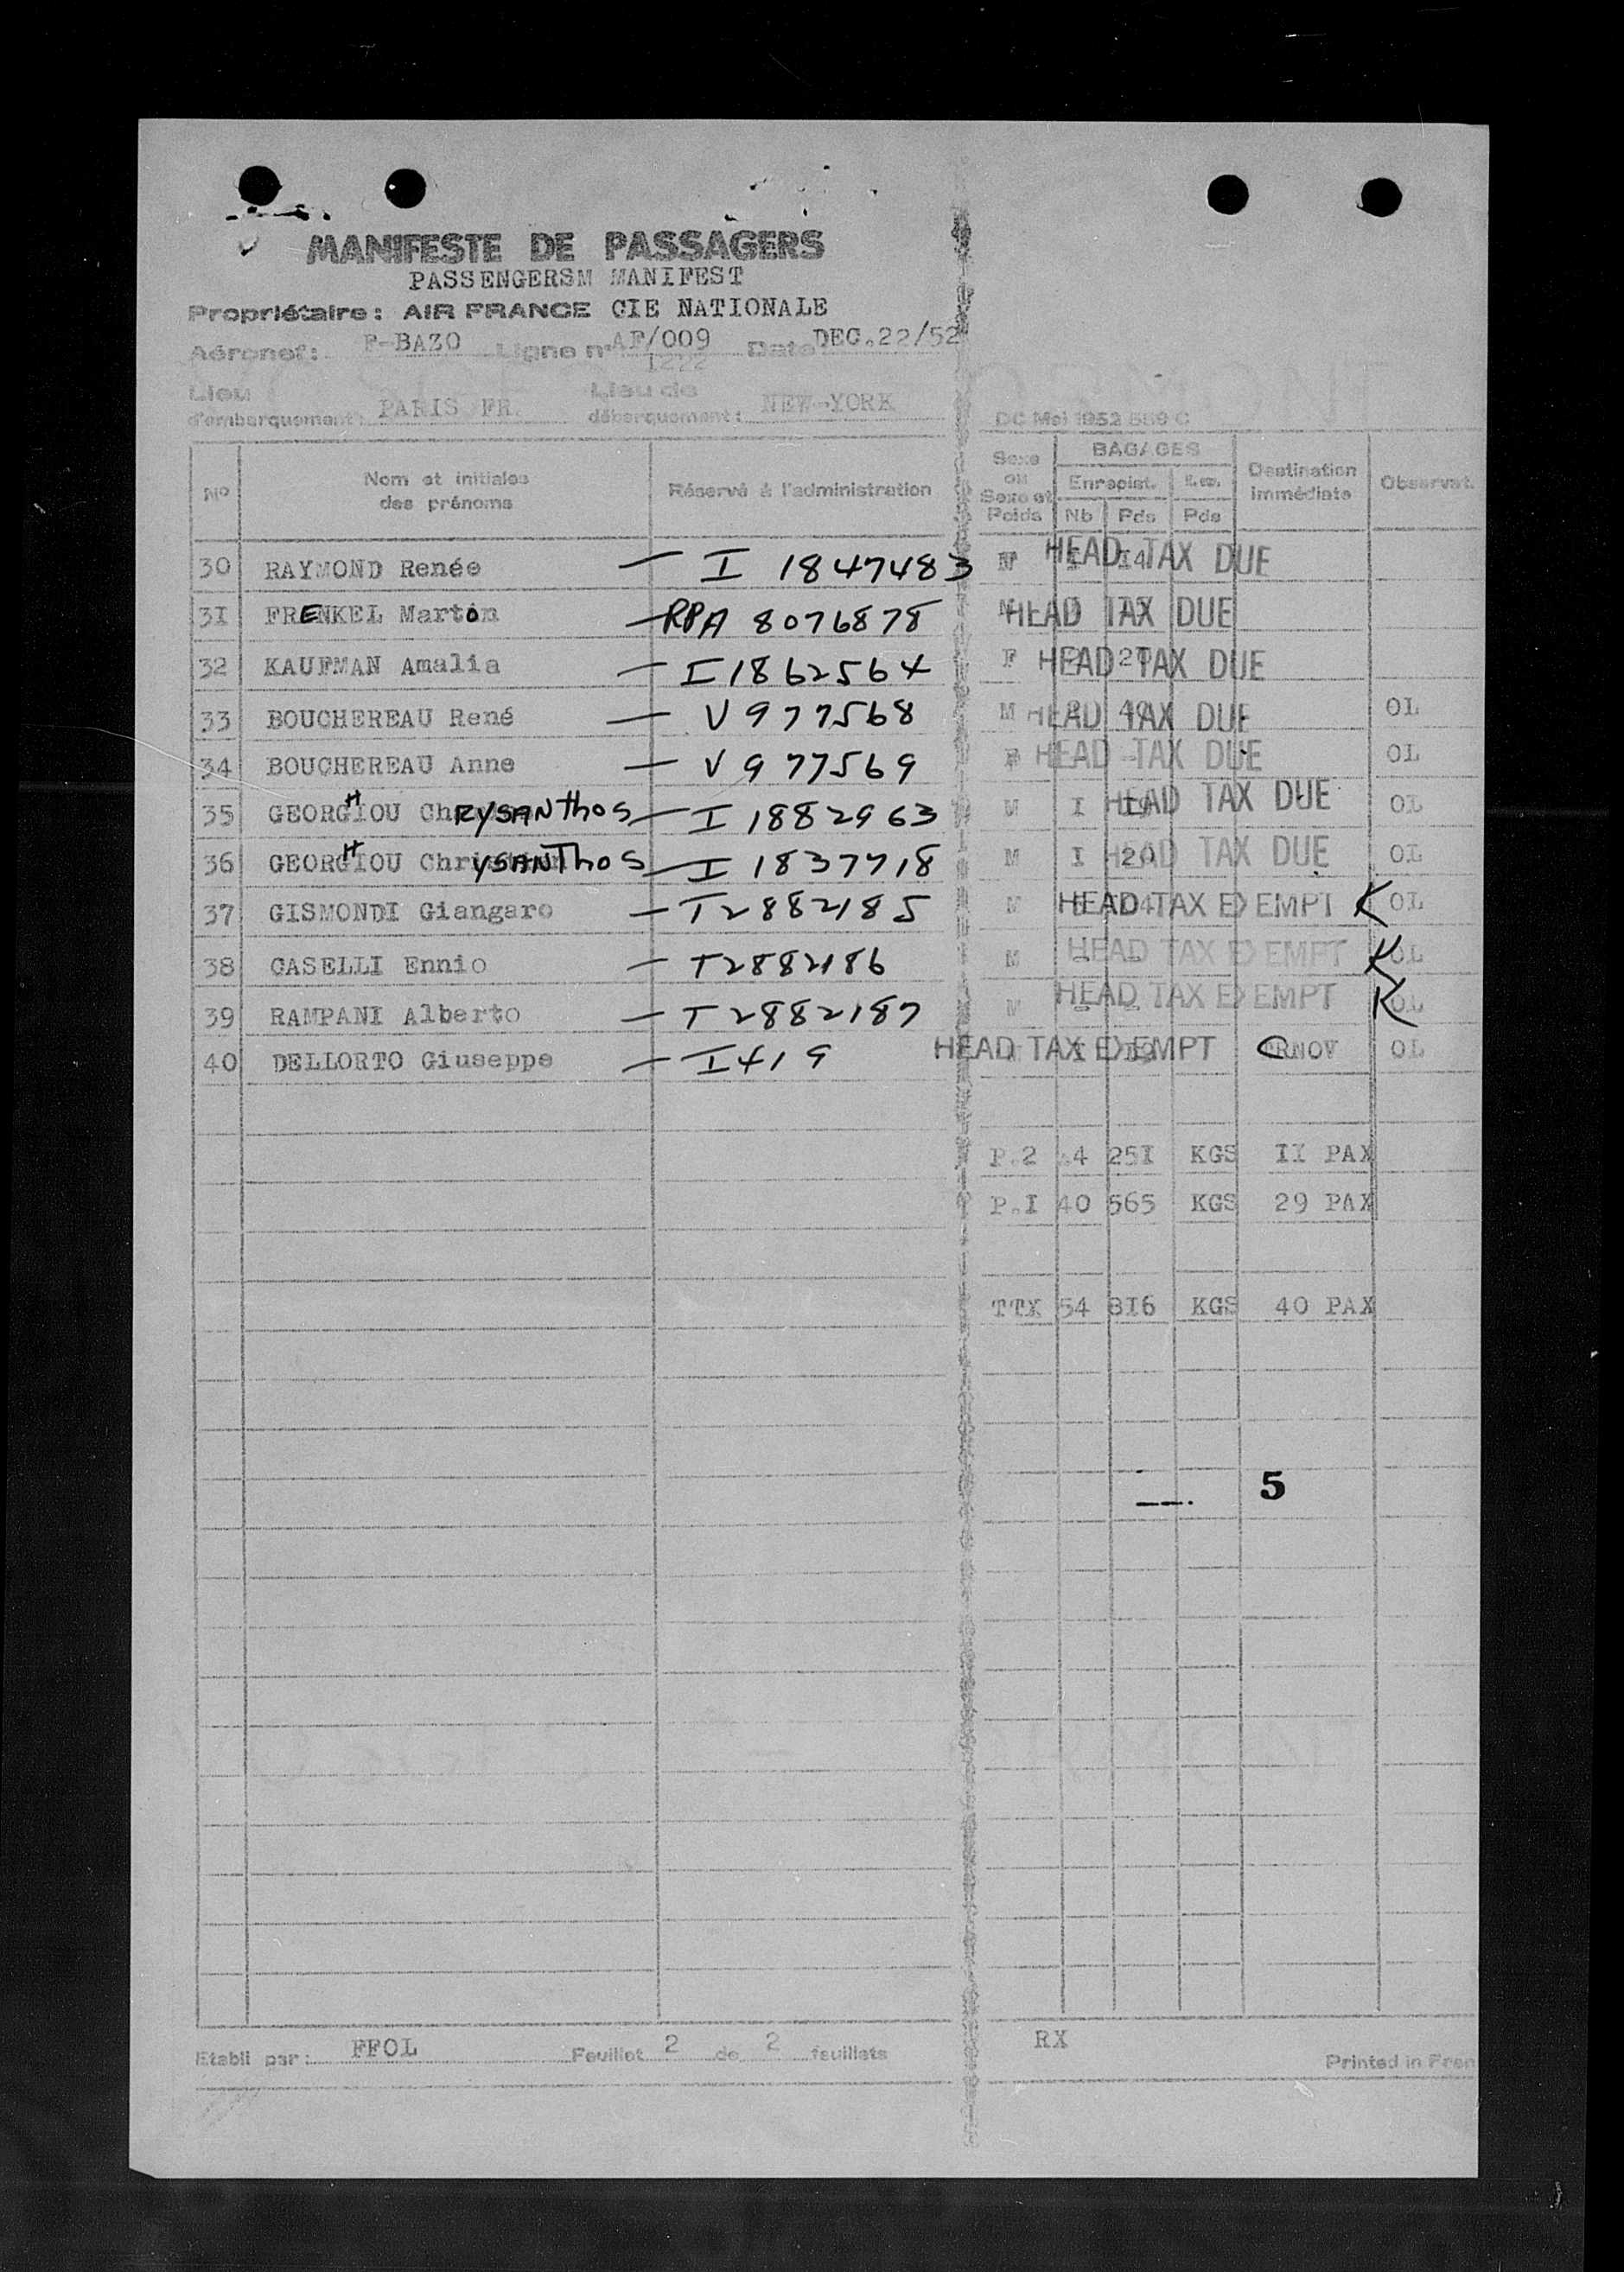 MANIFESTE DE PASSAGERS
PASSENGERSM MANIFEST
Propriétaire: AIR FRANCE CIE NATIONALE
Aéronef: F-BAZO Ligne n° AF/009 Date DEC.22/52
1222
Lieu d'embarquement: PARIS FR. Lieu de débarquement: NEW-YORK
DC Mai 1952 589 C
Nº Nom et initiales des prénoms Réservé à l'administration Sexe ou Sexe et Poids BAGAGES Enregist. Nb Pds Pds Destination immédiate Observat.
30 RAYMOND Renée — I 1847483 HEAD TAX DUE
31 FRENKEL Marton — RPA 8076878 HEAD TAX DUE
32 KAUFMAN Amalia — I 1862564 F HEAD TAX DUE
33 BOUCHEREAU René — V 977568 M HEAD TAX DUE OL
34 BOUCHEREAU Anne — V 977569 HEAD TAX DUE OL
35 GEORGHIOU ChRYSANthos — I 1882963 M I HEAD TAX DUE OL
36 GEORGHIOU ChrYSANThos — I 1837718 M I 20 HEAD TAX DUE OL
37 GISMONDI Giangaro — T2882185 M HEAD TAX EXEMPT K OL
38 CASELLI Ennio — T2882186 M HEAD TAX EXEMPT K OL
39 RAMPANI Alberto — T2882187 M HEAD TAX EXEMPT K OL
40 DELLORTO Giuseppe — I419 HEAD TAX EXEMPT CRNOV OL
P.2 14 25I KGS II PAX
P.I 40 565 KGS 29 PAX
TTX 54 8I6 KGS 40 PAX
5
Etabli par: FFOL Feuillet 2 de 2 feuillets RX
Printed in Fran